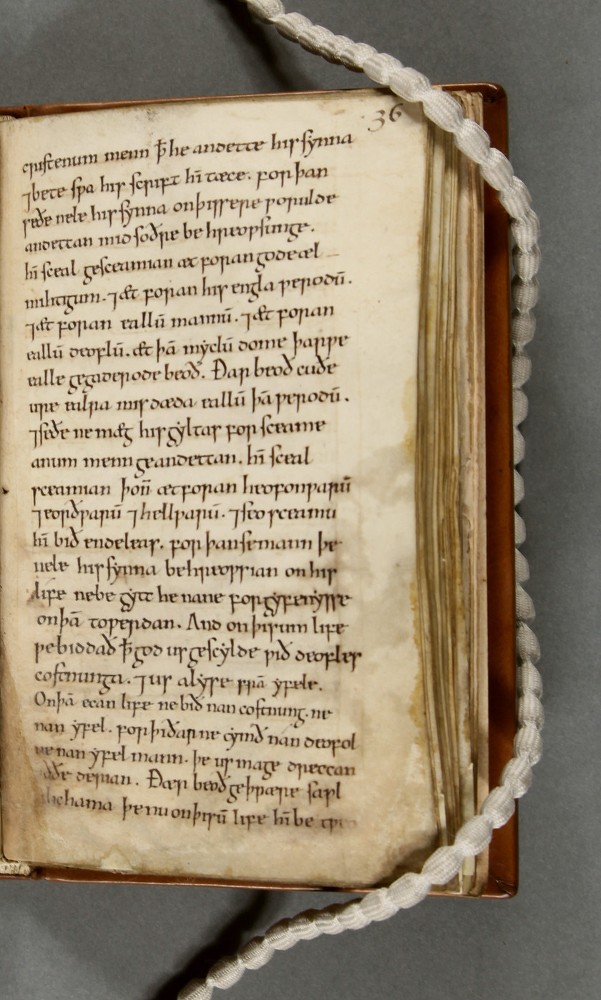 36
cristenum menn þ̄ he andette his synna
⁊ bete spa his scrift hī tæce. forþan
seðe nele his synna on þissere worulde
andettan mid soðre behreopsunge.
hī sceal gesceamian æt foran gode æl
mihtigum. ⁊ æt foran his engla werodū.
⁊ æt foran eallū mannū. ⁊ æt foran
eallū deoflū. æt þā myclū dome þær we
ealle gegaderode beoð. Ðar beoð cuðe
ure ealra misdæda eallū þā werodū.
⁊ seðe ne mæg his gyltas for sceame
anum menn geandettan. hī sceal
sceamian þoñ æt foran heofonwarū
⁊ eorðwarū ⁊ hellwarū. ⁊ seo sceamu
hī bið endeleas. forþan se mann þe
nele his synna behreowsian on his
life ne begytt he nane forgyfenysse
on þā towerdan. And on þisum life
we biddað þ̄ god us gescylde wið deofles
costnunga. ⁊ us alyse frā yfele.
On þā ecan life ne bið nan costnung. ne
nan yfel. forþi ðar ne cymð nan deofol
ne nan yfel mann. þe us mage dreccan
oððe derian. Ðær beoð geþwære sawl
lichama þe nu on þisū life hī be